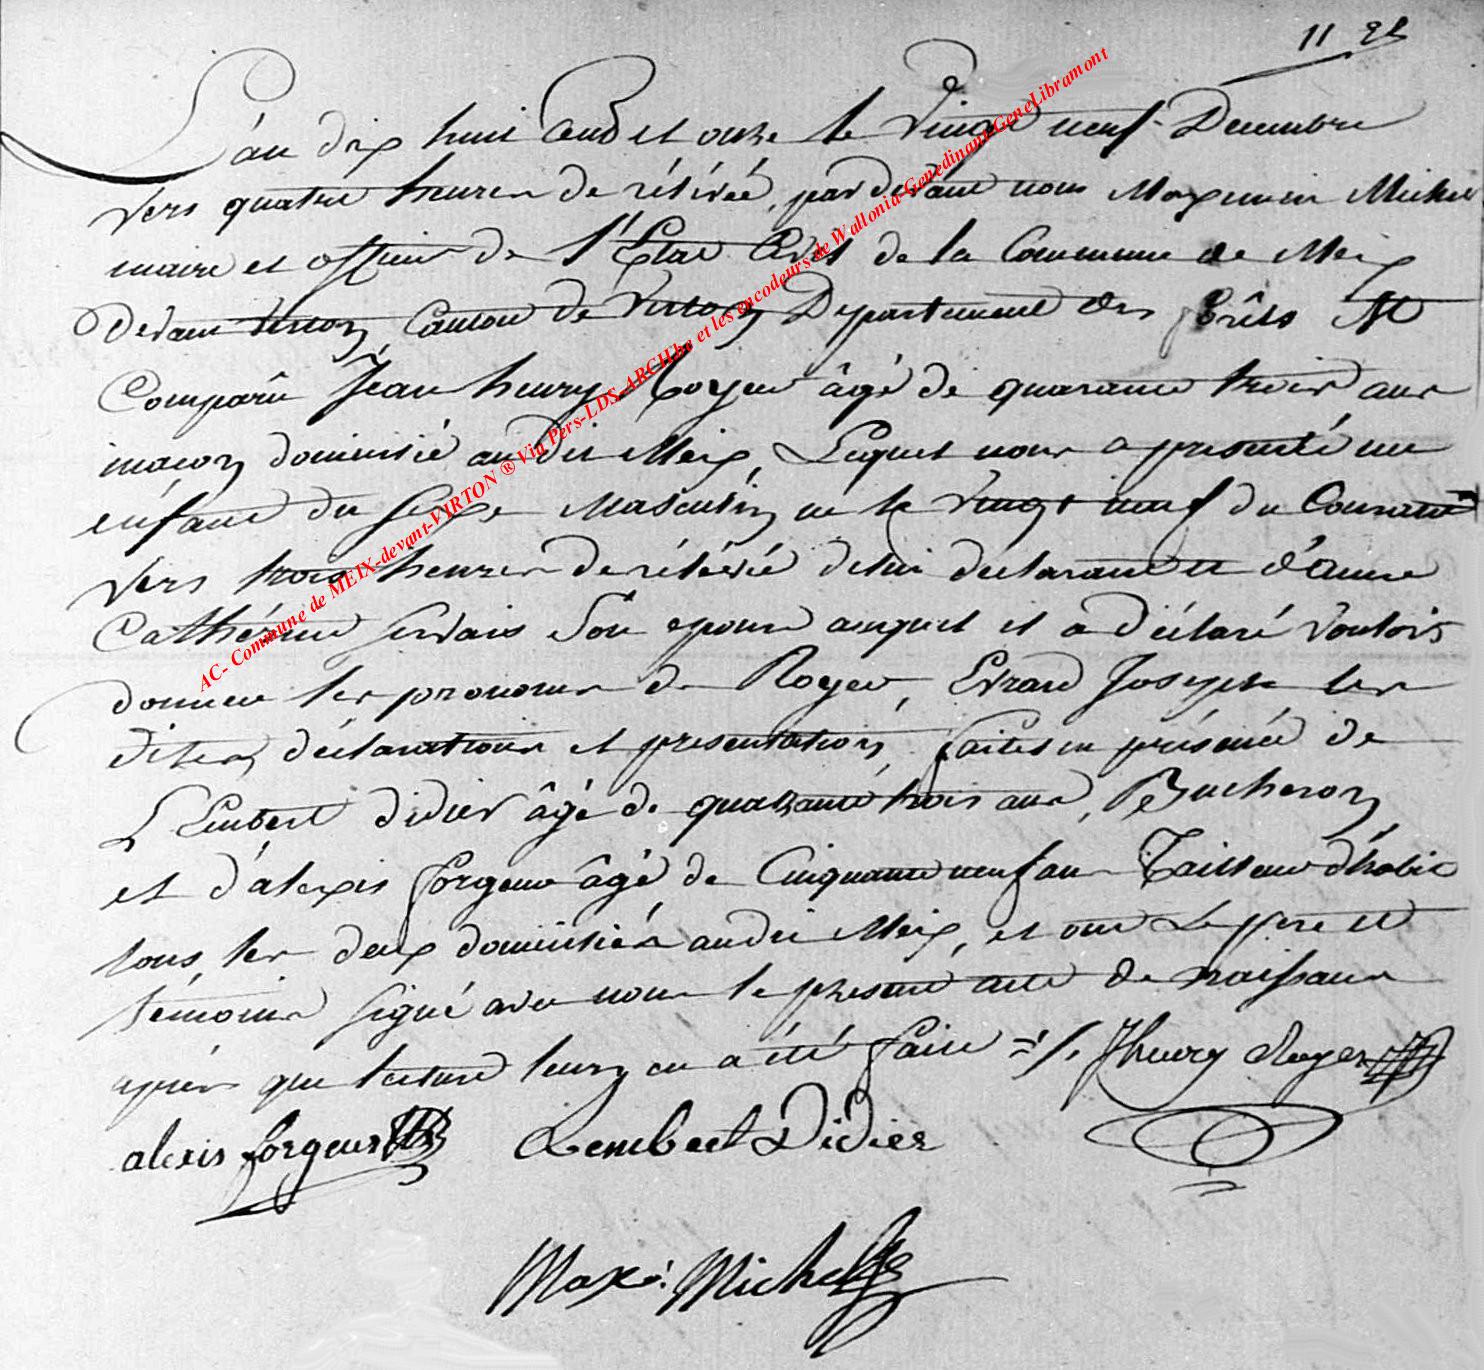 11 
L'an dix huit Cent et onze le Vingt neuf Decembre
vers quatre heures de rélévée, pardevant nous Maximin Michel
maire et officier de l'Etat Civil de la Commune de Meix
devant virton, Canton de Virton, Departement des forêts est
Comparû Jean henry Royer âgé de quarante trois ans
maçon domicilié audit Meix, Lequel nous a presenté un
enfant du sexe Masculin né le Vingt neuf du Courant
vers trois heures de rélévée de lui declarant et d'Anne
Cathérine Servais son epouse auquel il a déclaré vouloir
donner les prenoms de Royer Evrard Joseph les
dites déclarations et presentation faites en présence de
Lembert didier âgé de quarante trois ans, Bucheron,
et d'alexis forgeur âgé de Cinquante neuf ans Tailleur d'habit
tous les deux domiciliés audit Meix, et ont Le père et
témoins signé avec nous le present acte de naissance
après que lecture leurs en a été faite J henry Royer
alexis forgeur Lembert Didier
Maxi. Michel
AC- Commune de MEIX-devant-VIRTON ® Via Pers-LDS-ARCH.be et les encodeurs de Wallonia-Genedinant-GeneLibramont